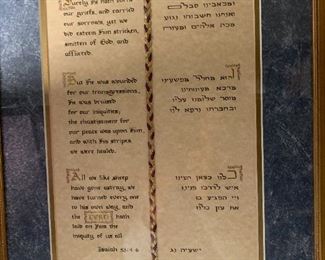 Surely He hath borne
our griefs, and carried
our sorrows, yet we
did esteem Him stricken,
smitten of God, and
afflicted.
But He was wounded
for our transgressions,
He was bruised
for our iniquities;
the chastisement for
our peace was upon Him,
and with His stripes
we were healed.
All we like sheep
have gone astray, we
have turned every one
to his own way, and
the LORD hath
laid on Him the
iniquity of us all
Isaiah 53:4-6
ומכאבינו סבלם
ואנחנו חשבנוהו נגוע
מכה אלהים ומענה
והוא מחולל מפשעינו
מדכא מעונותינו
מוסר שלומנו עליו
ובחברתו נרפא לנו
כלנו כצאן תעינו
איש לדרכו פנינו
ויי הפגיע בו
את עון כלנו
ישעיה נג